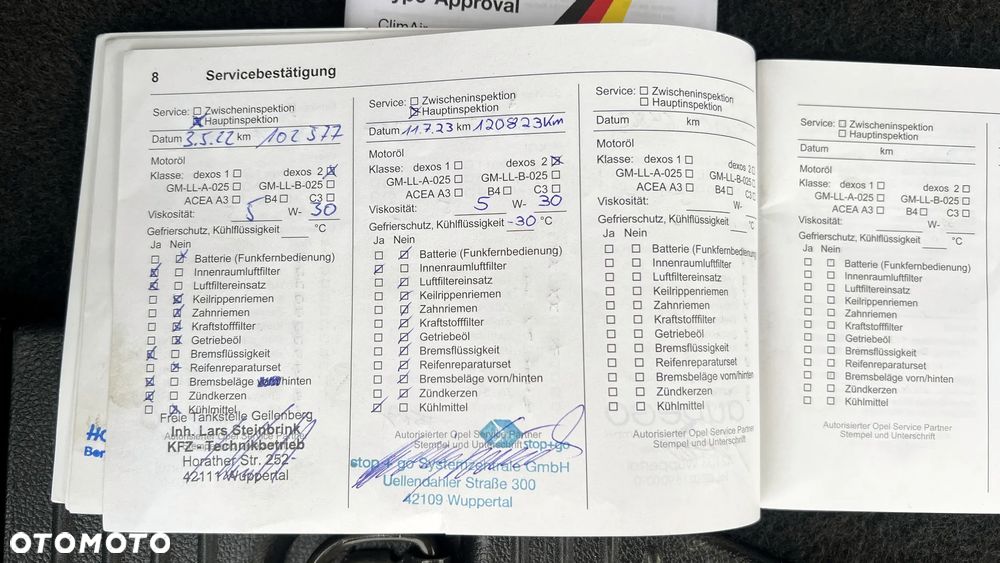 Type Approval
ClimAir
8 Servicebestätigung
Service: ☐ Zwischeninspektion
☒ Hauptinspektion
Datum 3.5.22 km 102577
Motoröl
Klasse: dexos 1 ☐ dexos 2 ☒
GM-LL-A-025 ☐ GM-LL-B-025 ☐
ACEA A3 ☐ B4 ☐ C3 ☐
Viskosität: 5 W- 30
Gefrierschutz, Kühlflüssigkeit ____ °C
Ja Nein
☐ ☒ Batterie (Funkfernbedienung)
☒ ☐ Innenraumluftfilter
☒ ☐ Luftfiltereinsatz
☐ ☒ Keilrippenriemen
☐ ☒ Zahnriemen
☐ ☒ Kraftstofffilter
☐ ☒ Getriebeöl
☒ ☐ Bremsflüssigkeit
☐ ☒ Reifenreparaturset
☒ ☐ Bremsbeläge vorn/hinten
☒ ☐ Zündkerzen
☐ ☒ Kühlmittel
Freie Tankstelle Geilenberg
Inh. Lars Steinbrink
Autorisierter Opel Service Partner
KFZ - Technikbetrieb
Horather Str. 252
42111 Wuppertal
Service: ☐ Zwischeninspektion
☒ Hauptinspektion
Datum 11.7.23 km 120823km
Motoröl
Klasse: dexos 1 ☐ dexos 2 ☒
GM-LL-A-025 ☐ GM-LL-B-025 ☐
ACEA A3 ☐ B4 ☐ C3 ☐
Viskosität: 5 W- 30
Gefrierschutz, Kühlflüssigkeit -30 °C
Ja Nein
☐ ☒ Batterie (Funkfernbedienung)
☒ ☐ Innenraumluftfilter
☐ ☒ Luftfiltereinsatz
☐ ☒ Keilrippenriemen
☐ ☒ Zahnriemen
☐ ☒ Kraftstofffilter
☐ ☒ Getriebeöl
☐ ☒ Bremsflüssigkeit
☐ ☒ Reifenreparaturset
☐ ☒ Bremsbeläge vorn/hinten
☐ ☒ Zündkerzen
☒ ☐ Kühlmittel
Autorisierter Opel Service Partner
Stempel und Unterschrift
stop+go
stop + go Systemzentrale GmbH
Uellendahler Straße 300
42109 Wuppertal
Service: ☐ Zwischeninspektion
☐ Hauptinspektion
Datum km
Motoröl
Klasse: dexos 1 ☐ dexos 2 ☐
GM-LL-A-025 ☐ GM-LL-B-025 ☐
ACEA A3 ☐ B4 ☐ C3 ☐
Viskosität: ____ W-
Gefrierschutz, Kühlflüssigkeit ____ °C
Ja Nein
☐ ☐ Batterie (Funkfernbedienung)
☐ ☐ Innenraumluftfilter
☐ ☐ Luftfiltereinsatz
☐ ☐ Keilrippenriemen
☐ ☐ Zahnriemen
☐ ☐ Kraftstofffilter
☐ ☐ Getriebeöl
☐ ☐ Bremsflüssigkeit
☐ ☐ Reifenreparaturset
☐ ☐ Bremsbeläge vorn/hinten
☐ ☐ Zündkerzen
☐ ☐ Kühlmittel
Autorisierter Opel Service Partner
Stempel und Unterschrift
Service: ☐ Zwischeninspektion
☐ Hauptinspektion
Datum km
Motoröl
Klasse: dexos 1 ☐ dexos 2 ☐
GM-LL-A-025 ☐ GM-LL-B-025 ☐
ACEA A3 ☐ B4 ☐ C3 ☐
Viskosität: ____ W-
Gefrierschutz, Kühlflüssigkeit ____ °C
Ja Nein
☐ ☐ Batterie (Funkfernbedienung)
☐ ☐ Innenraumluftfilter
☐ ☐ Luftfiltereinsatz
☐ ☐ Keilrippenriemen
☐ ☐ Zahnriemen
☐ ☐ Kraftstofffilter
☐ ☐ Getriebeöl
☐ ☐ Bremsflüssigkeit
☐ ☐ Reifenreparaturset
☐ ☐ Bremsbeläge vorn/hinten
☐ ☐ Zündkerzen
☐ ☐ Kühlmittel
Autorisierter Opel Service Partner
Stempel und Unterschrift
OTOMOTO